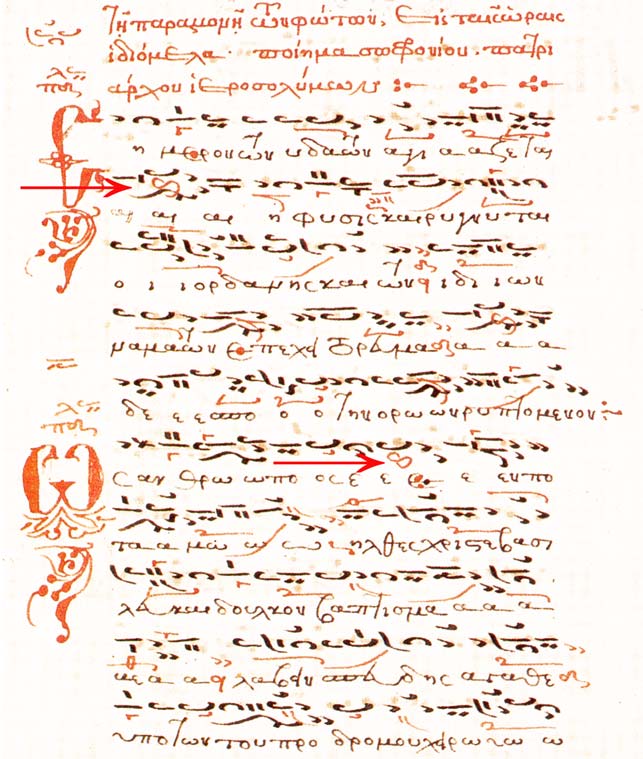 Τῇ παραμονῇ τῶν φώτων, Εἰς τὰς ὥρας
ἰδιόμελα · ποίημα σωφρονίου · πατρι
άρχου ἱεροσολύμων
Σ η μερον των υδατων αγι α αζεται
αι αι η φυσις και ρυγνυται
ο ι ιορδανης και των ιδι ι ων
ναματων επεχει το ρευμα α α
δε ε ε ο ο την ορω ων ρυπτομενον :
Ω ς αν θρω ωπο ος ε ε ε ε εν πο
τα α μω ω ω ηλθες χριστε βασι
λευ και δουλικον βαπτισμα α α α
α α λαβειν δης αγαθε
υπο των του προ δρομου χειρω ω ω